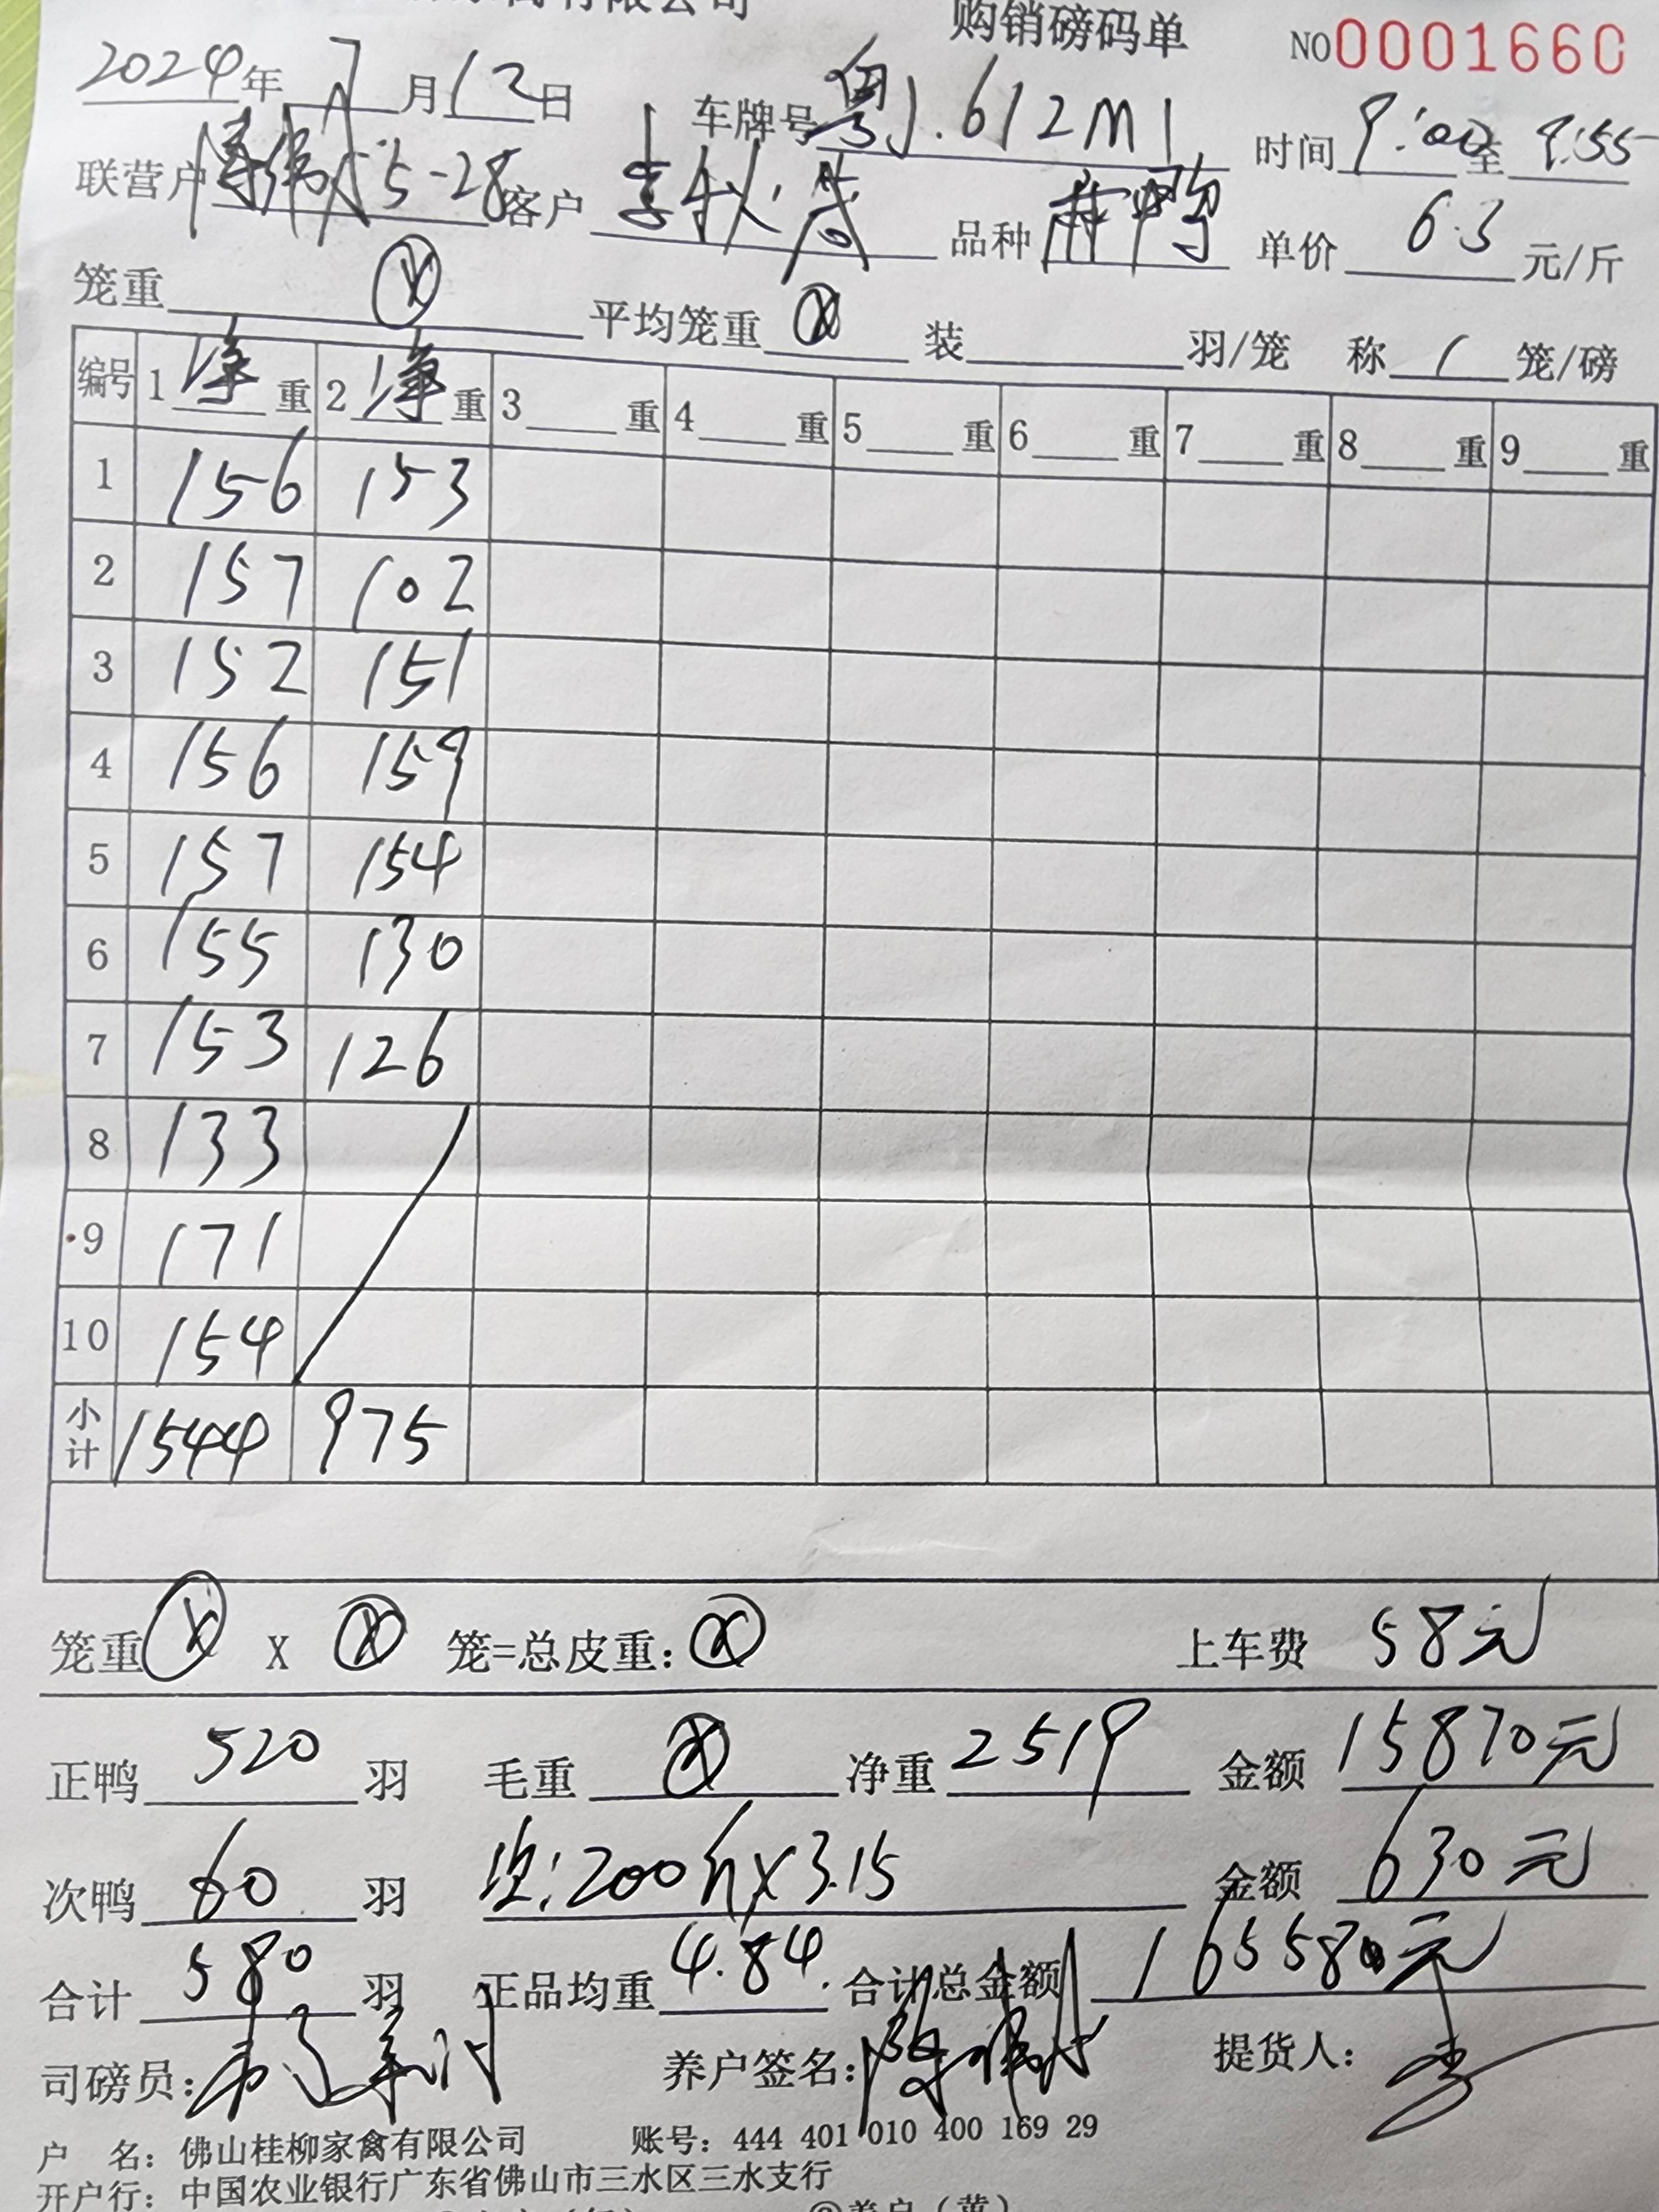 有限公司 购销磅码单 NO0001660
2024年 7月12日 车牌号 粤J.612M1 时间 9:00至 9:55
联营户 5-28 客户 李秋 品种 麻鸭 单价 6.3 元/斤
笼重 ⓧ 平均笼重 ⓧ 装 羽/笼 称 1 笼/磅
编号 1 净 重 2 净 重 3 重 4 重 5 重 6 重 7 重 8 重 9 重
1 156 153
2 157 102
3 152 151
4 156 159
5 157 154
6 155 130
7 153 126
8 133
9 171
10 154
小计 1544 975
笼重 ⓧ X ⓧ 笼=总皮重: ⓧ 上车费 58元
正鸭 520 羽 毛重 ⓧ 净重 2519 金额 15870元
次鸭 60 羽 次:200斤x3.15 金额 630元
合计 580 羽 正品均重 4.84. 合计总金额 16558元
司磅员: 养户签名: 提货人: 李
户 名: 佛山桂柳家禽有限公司 账号: 444 401 010 400 169 29
开户行: 中国农业银行广东省佛山市三水区三水支行
②养户(黄)